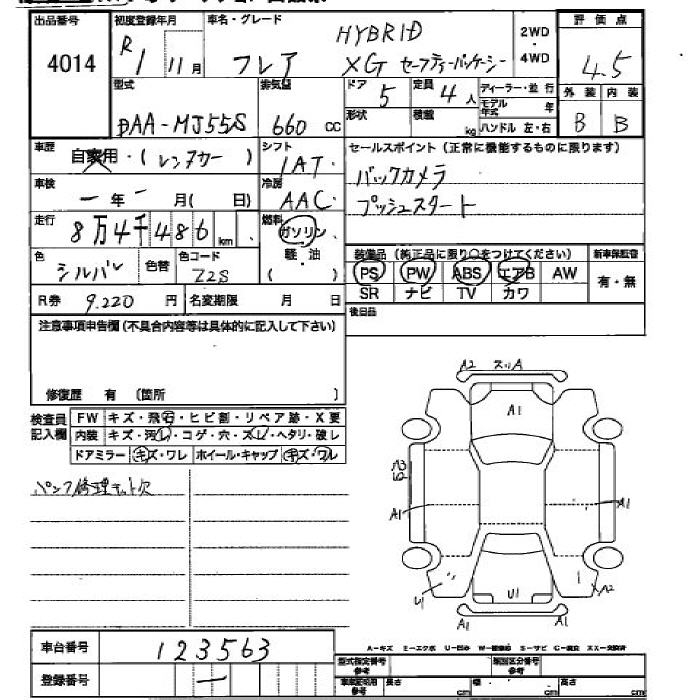 出品番号 初度登録年月 車名・グレード HYBRID 2WD・4WD 評価点
4014 R1 11月 フレア XG セーフティーパッケージ 4.5
型式 排気量 ドア 5 定員 4人 ディーラー・並行 外装 内装
DAA-MJ55S 660cc 形状 積載 kg モデル年式 年 ハンドル 左・右 B B
車歴 自家用・(レンタカー) シフト 1AT セールスポイント(正常に機能するものに限ります)
車検 一年一月(日) 冷房 AAC バックカメラ
プッシュスタート
走行 8万4千486km 燃料 ガソリン 軽・油 ( )
色 シルバー 色替 色コード Z2S
装備品(純正品に限り○をつけてください) 新車保証書
PS PW ABS エアB AW 有・無
SR ナビ TV カワ
R券 9.220円 名変期限 月 日 後日品
注意事項申告欄(不具合内容等は具体的に記入して下さい)
修復歴 有 〔箇所 〕
検査員記入欄 FW キズ・飛石・ヒビ割・リペア跡・X要
内装 キズ・汚レ・コゲ・穴・スレ・ヘタリ・破レ
ドアミラー キズ・ワレ ホイール・キャップ キズ・ワレ
パンク修理キット欠
A2 スリA
A1
A1 A1
U1 U1 A2
A1 A1
A-キズ E-エクボ U-凹み W-補修跡 S-サビ C-腐食 XX-交換済
車台番号 123563
登録番号 一
型式指定番号 参考 類別区分番号 参考
車庫証明用 参考 長さ cm 幅 cm 高さ cm